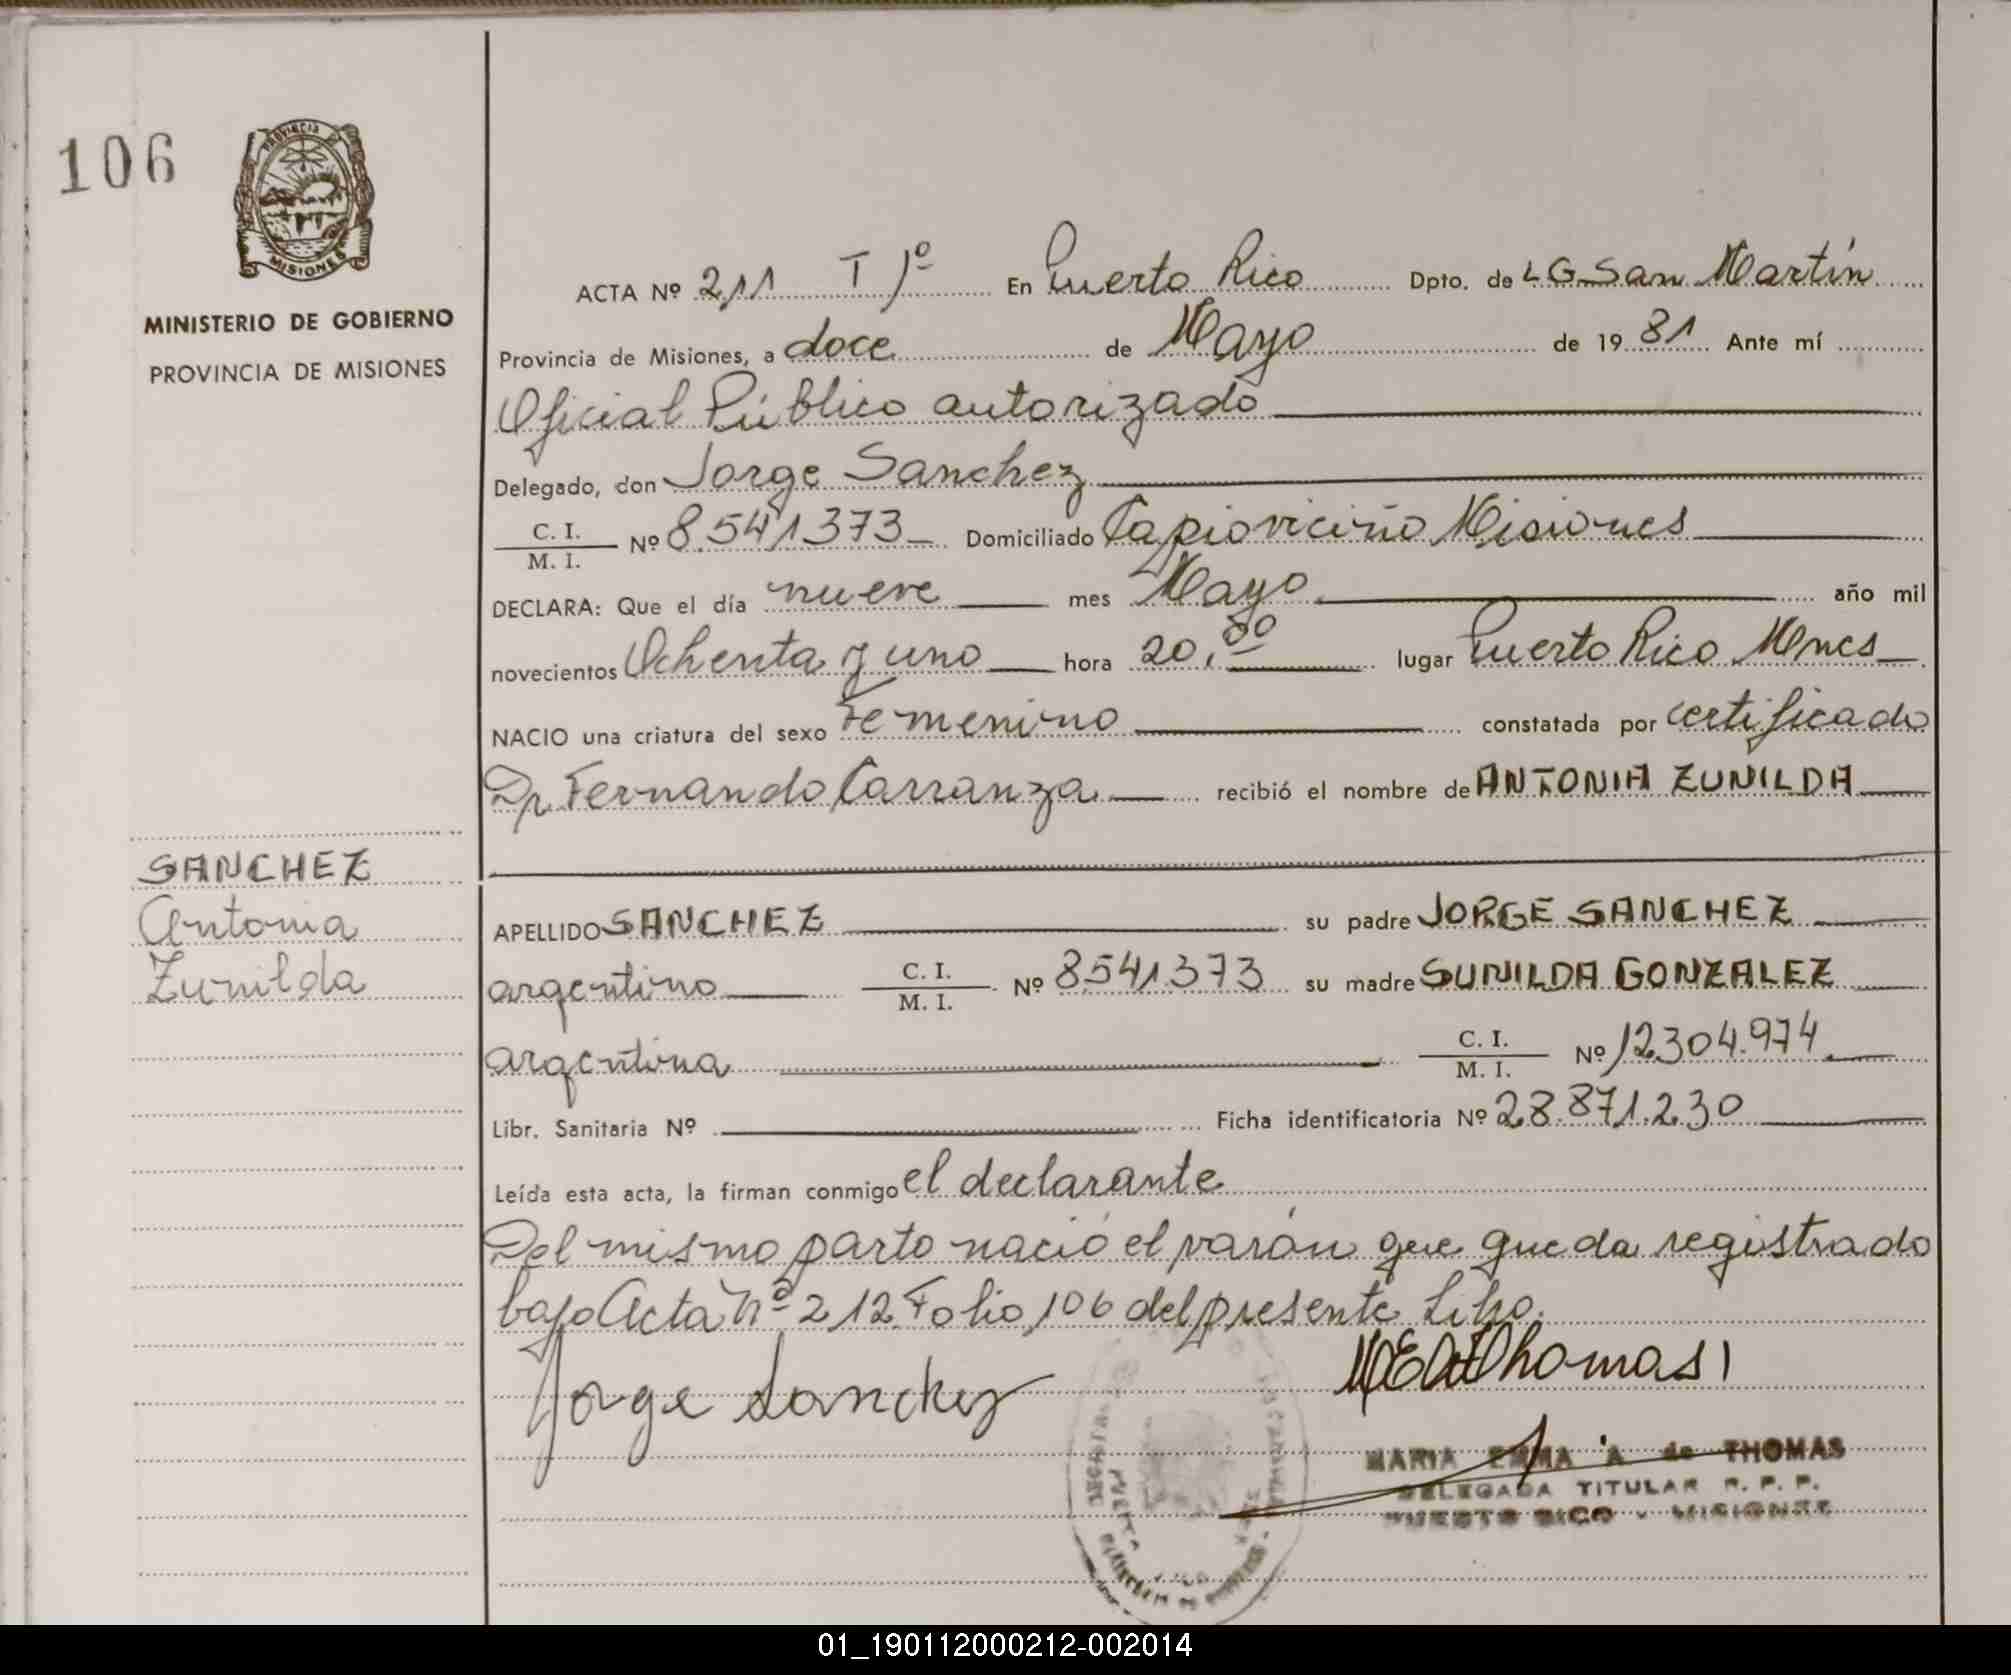 106
PROVINCIA DE
MISIONES
MINISTERIO DE GOBIERNO
PROVINCIA DE MISIONES
SANCHEZ
Antonia
Zunilda
ACTA Nº 211 T 1º En Puerto Rico Dpto. de L G San Martín
Provincia de Misiones, a doce de Mayo de 19 81 Ante mí
Oficial Público autorizado
Delegado, don Jorge Sanchez
C. I. / M. I. Nº 8.541373 Domiciliado Capioviciño Misiones
DECLARA: Que el día nueve mes Mayo año mil
novecientos Ochenta y uno hora 20,00 lugar Puerto Rico Mnes
NACIO una criatura del sexo Femenino constatada por certificado
Dr Fernando Carranza recibió el nombre de ANTONIA ZUNILDA
APELLIDO SANCHEZ su padre JORGE SANCHEZ
argentino C. I. / M. I. Nº 8541.373 su madre SUNILDA GONZALEZ
argentina C. I. / M. I. Nº 12.304.974
Libr. Sanitaria Nº Ficha identificatoria Nº 28.871.230
Leída esta acta, la firman conmigo el declarante
Del mismo parto nació el varón que queda registrado
bajo Acta Nº 212 Folio 106 del presente Libro.
Jorge Sanchez
Thomas
MARIA EMMA A de THOMAS
DELEGADA TITULAR R. P. P.
PUERTO RICO - MISIONES
01_190112000212-002014